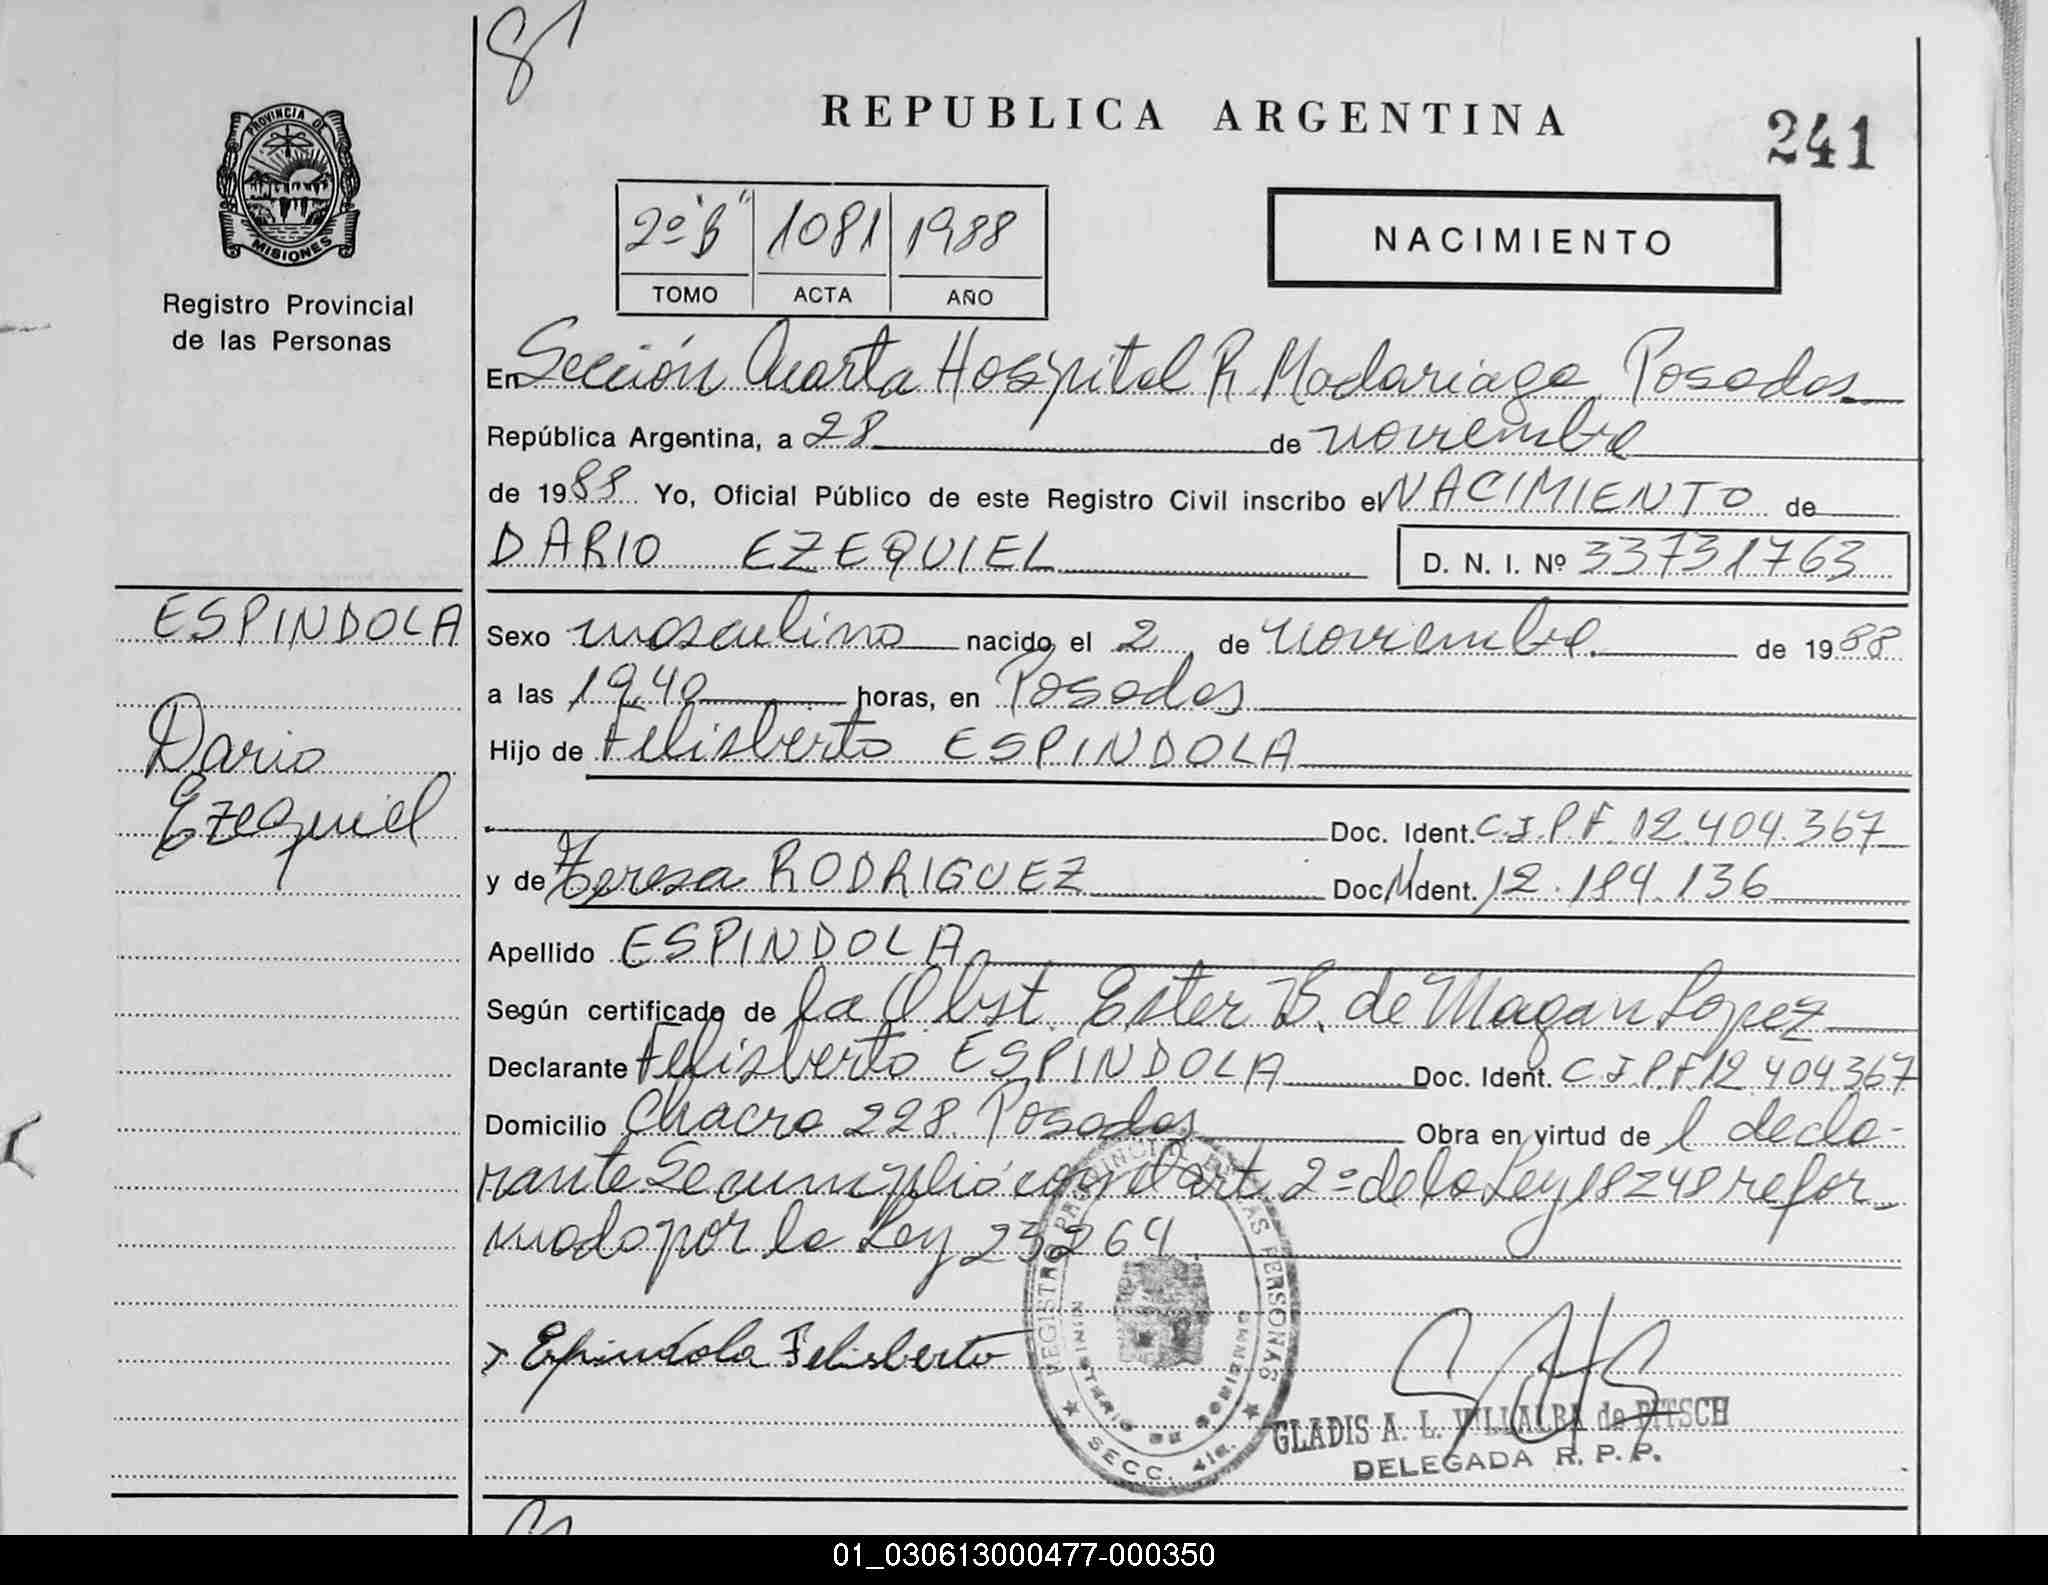 REPUBLICA ARGENTINA
241
PROVINCIA DE
MISIONES
Registro Provincial
de las Personas
2º "B" 1081 1988
TOMO ACTA AÑO
NACIMIENTO
En Sección Cuarta Hospital R Madariaga Posadas
República Argentina, a 28 de noviembre
de 1988 Yo, Oficial Público de este Registro Civil inscribo el NACIMIENTO de
DARIO EZEQUIEL D. N. I. Nº 33731763
ESPINDOLA
Dario
Ezequiel
Sexo masculino nacido el 2 de noviembre de 1988
a las 19,40 horas, en Posadas
Hijo de Felisberto ESPINDOLA
Doc. Ident. C.I.P.F. 12.404.367
y de Teresa RODRIGUEZ Doc. Ident. 12.184.136
Apellido ESPINDOLA
Según certificado de la Obst. Ester B. de Magan Lopez
Declarante Felisberto ESPINDOLA Doc. Ident. C I P F 12 404 367
Domicilio Chacra 228. Posadas Obra en virtud de l decla-
rante Se cumplió con el art. 2º de la Ley 18248 refor-
mado por la Ley 23264
Espindola Felisberto
REGISTRO PROVINCIAL DE LAS PERSONAS
MINISTERIO DE GOBIERNO
SECC. 4ta.
GLADIS A. L. VILLALBA de PITSCH
DELEGADA R. P. P.
01_030613000477-000350